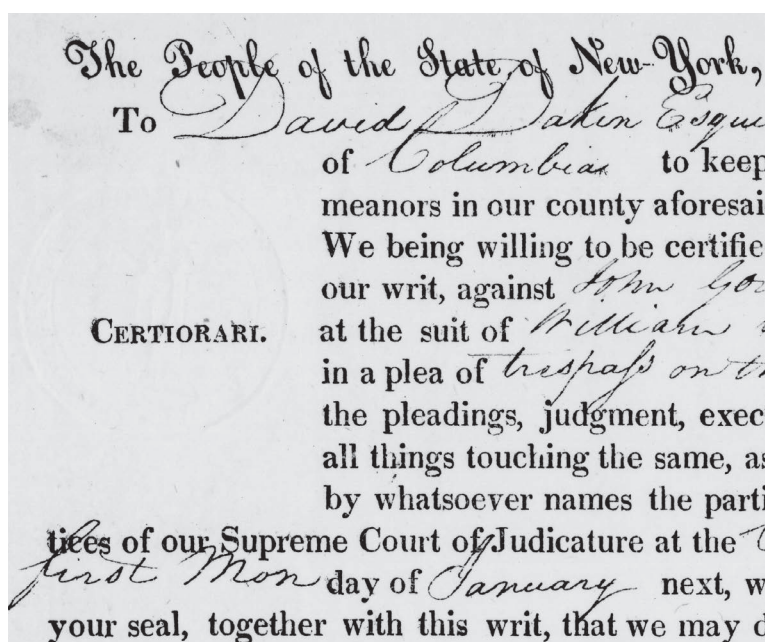 The People of the State of New-York,
To David Dakin Esqui
of Columbia to keep
meanors in our county aforesai
We being willing to be certifie
our writ, against John Go
CERTIORARI. at the suit of William
in a plea of trespass on th
the pleadings, judgment, exec
all things touching the same, as
by whatsoever names the parti
tices of our Supreme Court of Judicature at the
first Mon day of January next, w
your seal, together with this writ, that we may d